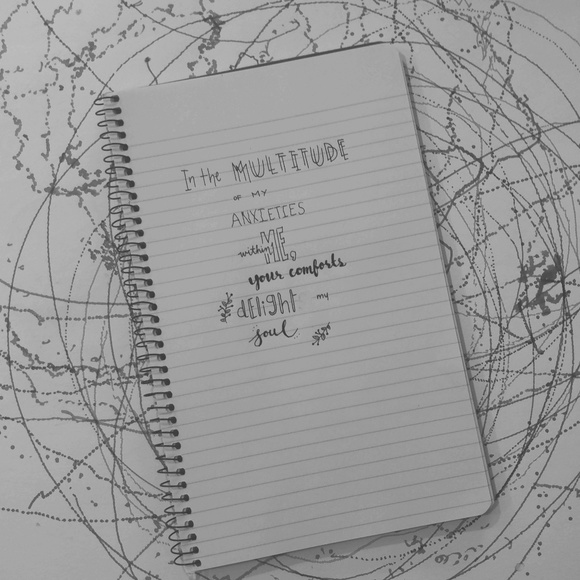 In the MULTITUDE
OF MY
ANXIETIES
within ME,
your comforts
dElIght my
soul